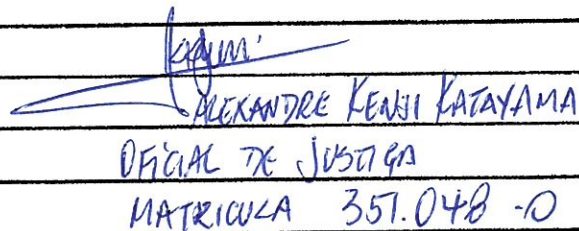 ALEXANDRE KENJI KATAYAMA
OFICIAL DE JUSTIÇA
MATRICULA 351.048-0